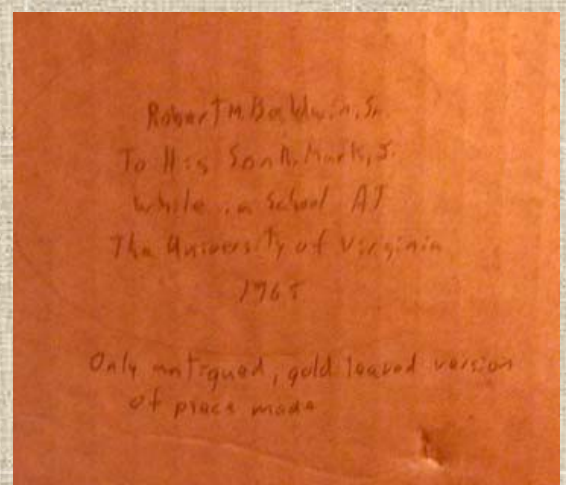 Robert M. Baldwin, Sr.
To His Son R. Mark, Jr.
While in School AT
The University of Virginia
1965
Only antiqued, gold leaved version
of piece made